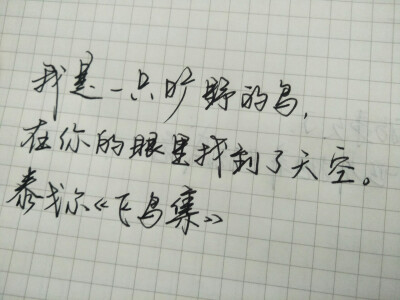 我是一只旷野的鸟,
在你的眼里找到了天空。
泰戈尔《飞鸟集》